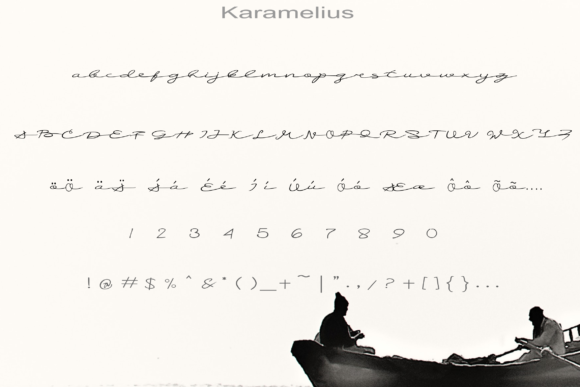 Karamelius
abcdefghijklmnopqrstuvwxyz
ABCDEFGHIJKLMNOPQRSTUVWXYZ
öÖ äÄ Áá Éé Íí Úú Óó Ææ Ôô Õõ....
1 2 3 4 5 6 7 8 9 0
!@#$%^&*()_+~|".,/?+[]{}...